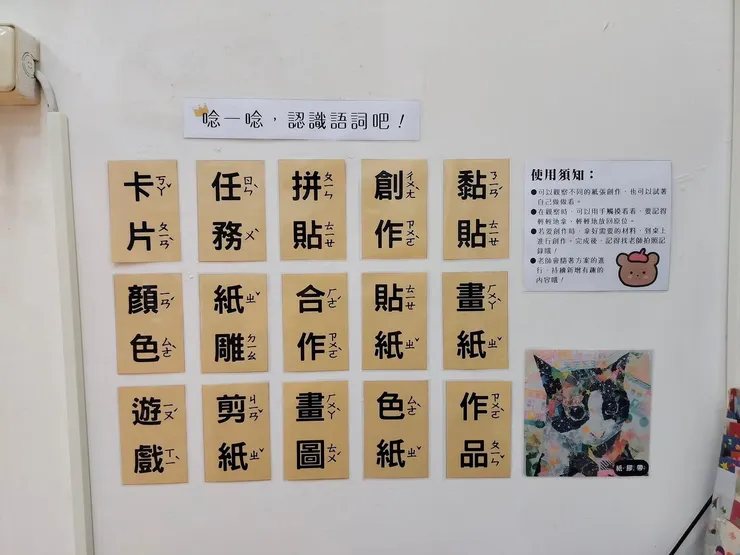 唸一唸，認識語詞吧！
卡片 ㄎㄚˇ ㄆㄧㄢˋ
任務 ㄖㄣˋ ㄨˋ
拼貼 ㄆㄧㄣ ㄊㄧㄝ
創作 ㄔㄨㄤˋ ㄗㄨㄛˋ
黏貼 ㄋㄧㄢˊ ㄊㄧㄝ
顏色 ㄧㄢˊ ㄙㄜˋ
紙雕 ㄓˇ ㄉㄧㄠ
合作 ㄏㄜˊ ㄗㄨㄛˋ
貼紙 ㄊㄧㄝ ㄓˇ
畫紙 ㄏㄨㄚˋ ㄓˇ
遊戲 ㄧㄡˊ ㄒㄧˋ
剪紙 ㄐㄧㄢˇ ㄓˇ
畫圖 ㄏㄨㄚˋ ㄊㄨˊ
色紙 ㄙㄜˋ ㄓˇ
作品 ㄗㄨㄛˋ ㄆㄧㄣˇ
使用須知：
●可以觀察不同的紙張創作，也可以試著
自己做做看。
●在觀察時，可以用手觸摸看看，要記得
輕輕地拿、輕輕地放回原位。
●若要創作時，拿好需要的材料，到桌上
進行創作。完成後，記得找老師拍照記
錄哦！
●老師會隨著方案的進
行，持續新增有趣的
內容哦！
紙膠帶